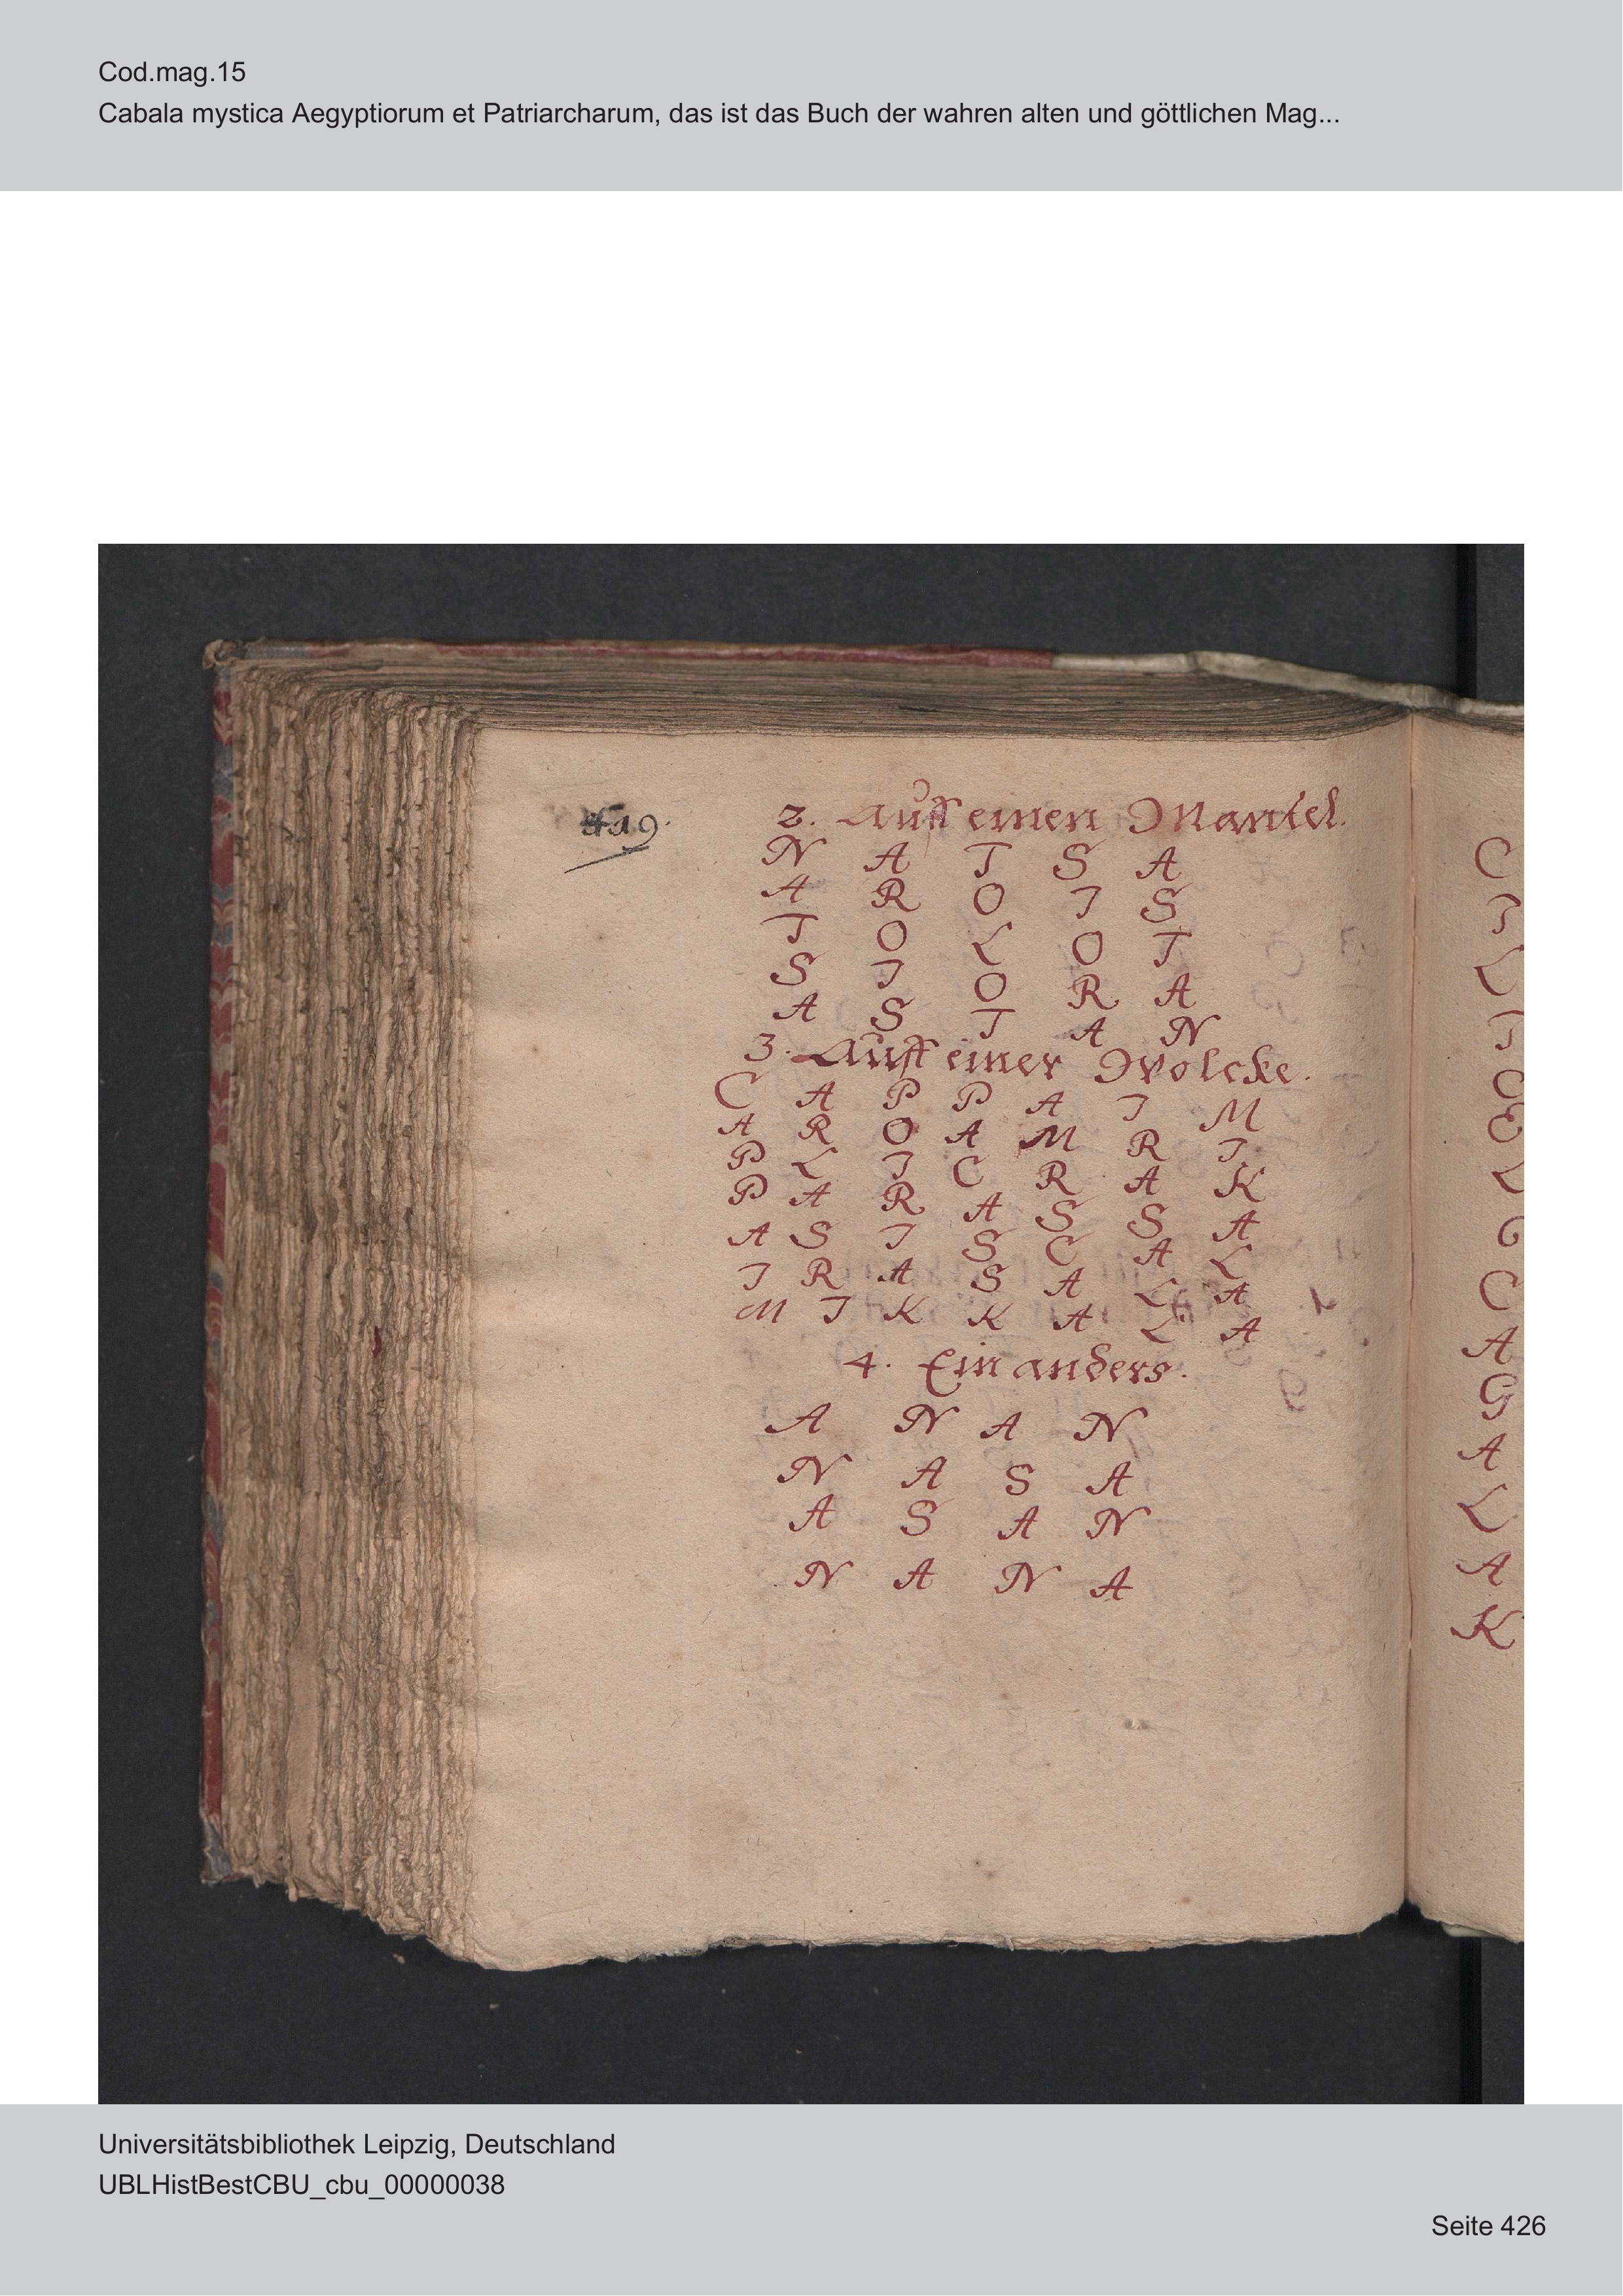 Cod.mag.15
Cabala mystica Aegyptiorum et Patriarcharum, das ist das Buch der wahren alten und göttlichen Mag...
419.
2. Auff einen Mantel.
N A T S A
A R O I S
T O L O T
S I O R A
A S T A N
3. Auff einer Wolcke.
C A P P A I M
A R O A M R I
P L I C R A K
P A R A S S A
A S I S C A L
I R A S A L A
M I K K A L A
4. Ein anders.
A N A N
N A S A
A S A N
N A N A
C
I
L
I
C
E
L
G
C
A
G
A
L
A
K
Universitätsbibliothek Leipzig, Deutschland
UBLHistBestCBU_cbu_00000038
Seite 426